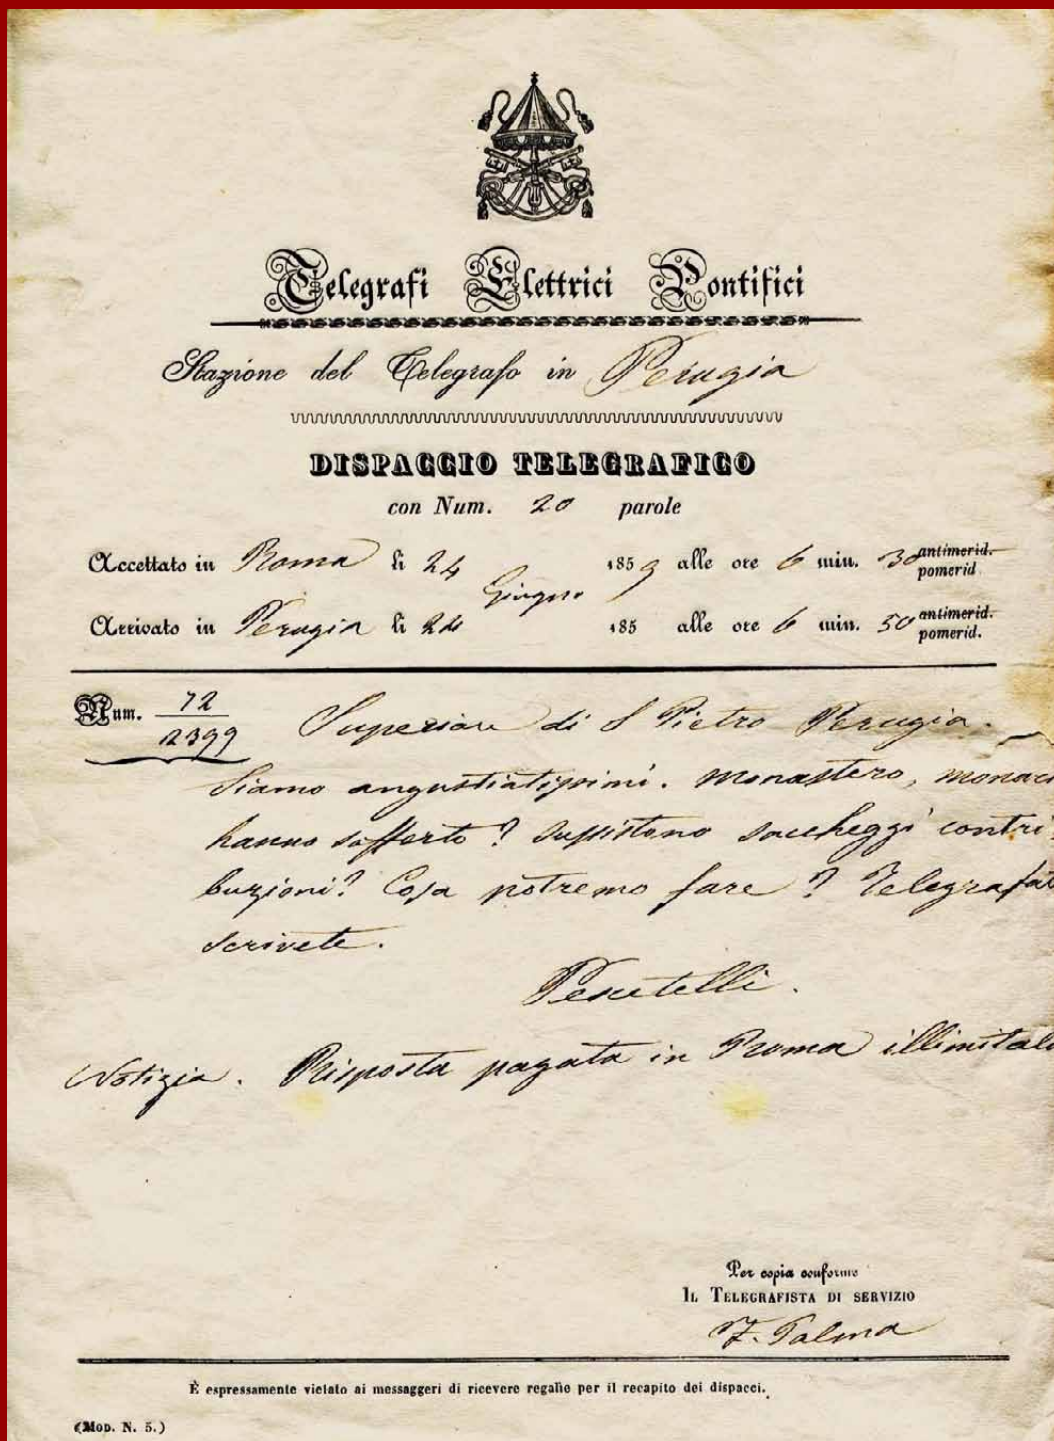 Telegrafi Elettrici Pontifici
Stazione del Telegrafo in Perugia
DISPACCIO TELEGRAFICO
con Num. 20 parole
Accettato in Roma li 24 Giugno 1859 alle ore 6 min. 30 antimerid. pomerid.
Arrivato in Perugia li 24 185 alle ore 6 min. 50 antimerid. pomerid.
Num. 72
2399
Superiore di S Pietro Perugia.
Siamo angustiatissimi. Monastero, monaci
hanno sofferto? Sussistono saccheggi contri
buzioni? Cosa potremo fare? Telegrafat
scrivete.
Pescetelli.
Notizia. Risposta pagata in Roma illimitata
Per copia conforme
IL TELEGRAFISTA DI SERVIZIO
F. Palma
È espressamente vietato ai messaggeri di ricevere regalie per il recapito dei dispacci.
(MOD. N. 5.)